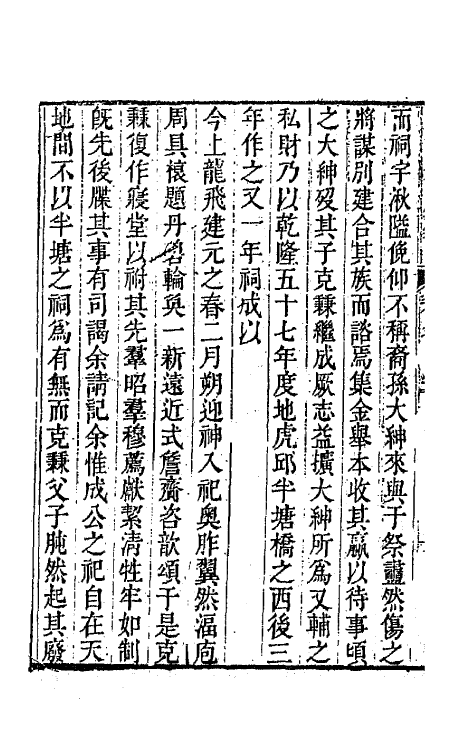 而祠宇湫隘俛仰不稱裔孫大紳來與于祭衋然傷之
將謀別建合其族而諮焉集金舉本收其贏以待事頃
之大紳歿其子克秉繼成厥志益擴大紳所爲又輔之
私財乃以乾隆五十七年度地虎邱半塘橋之西後三
年作之又一年祠成以
今上龍飛建元之春二月朔迎神入祀奧阼翼然湢庖
周具榱題丹雘輪奐一新遠近式詹齎咨歆頌于是克
秉復作寢堂以祔其先羣昭羣穆薦獻絜清牲牢如制
旣先後牒其事有司謁余請記余惟成公之祀自在天
地間不以半塘之祠爲有無而克秉父子肫然起其廢